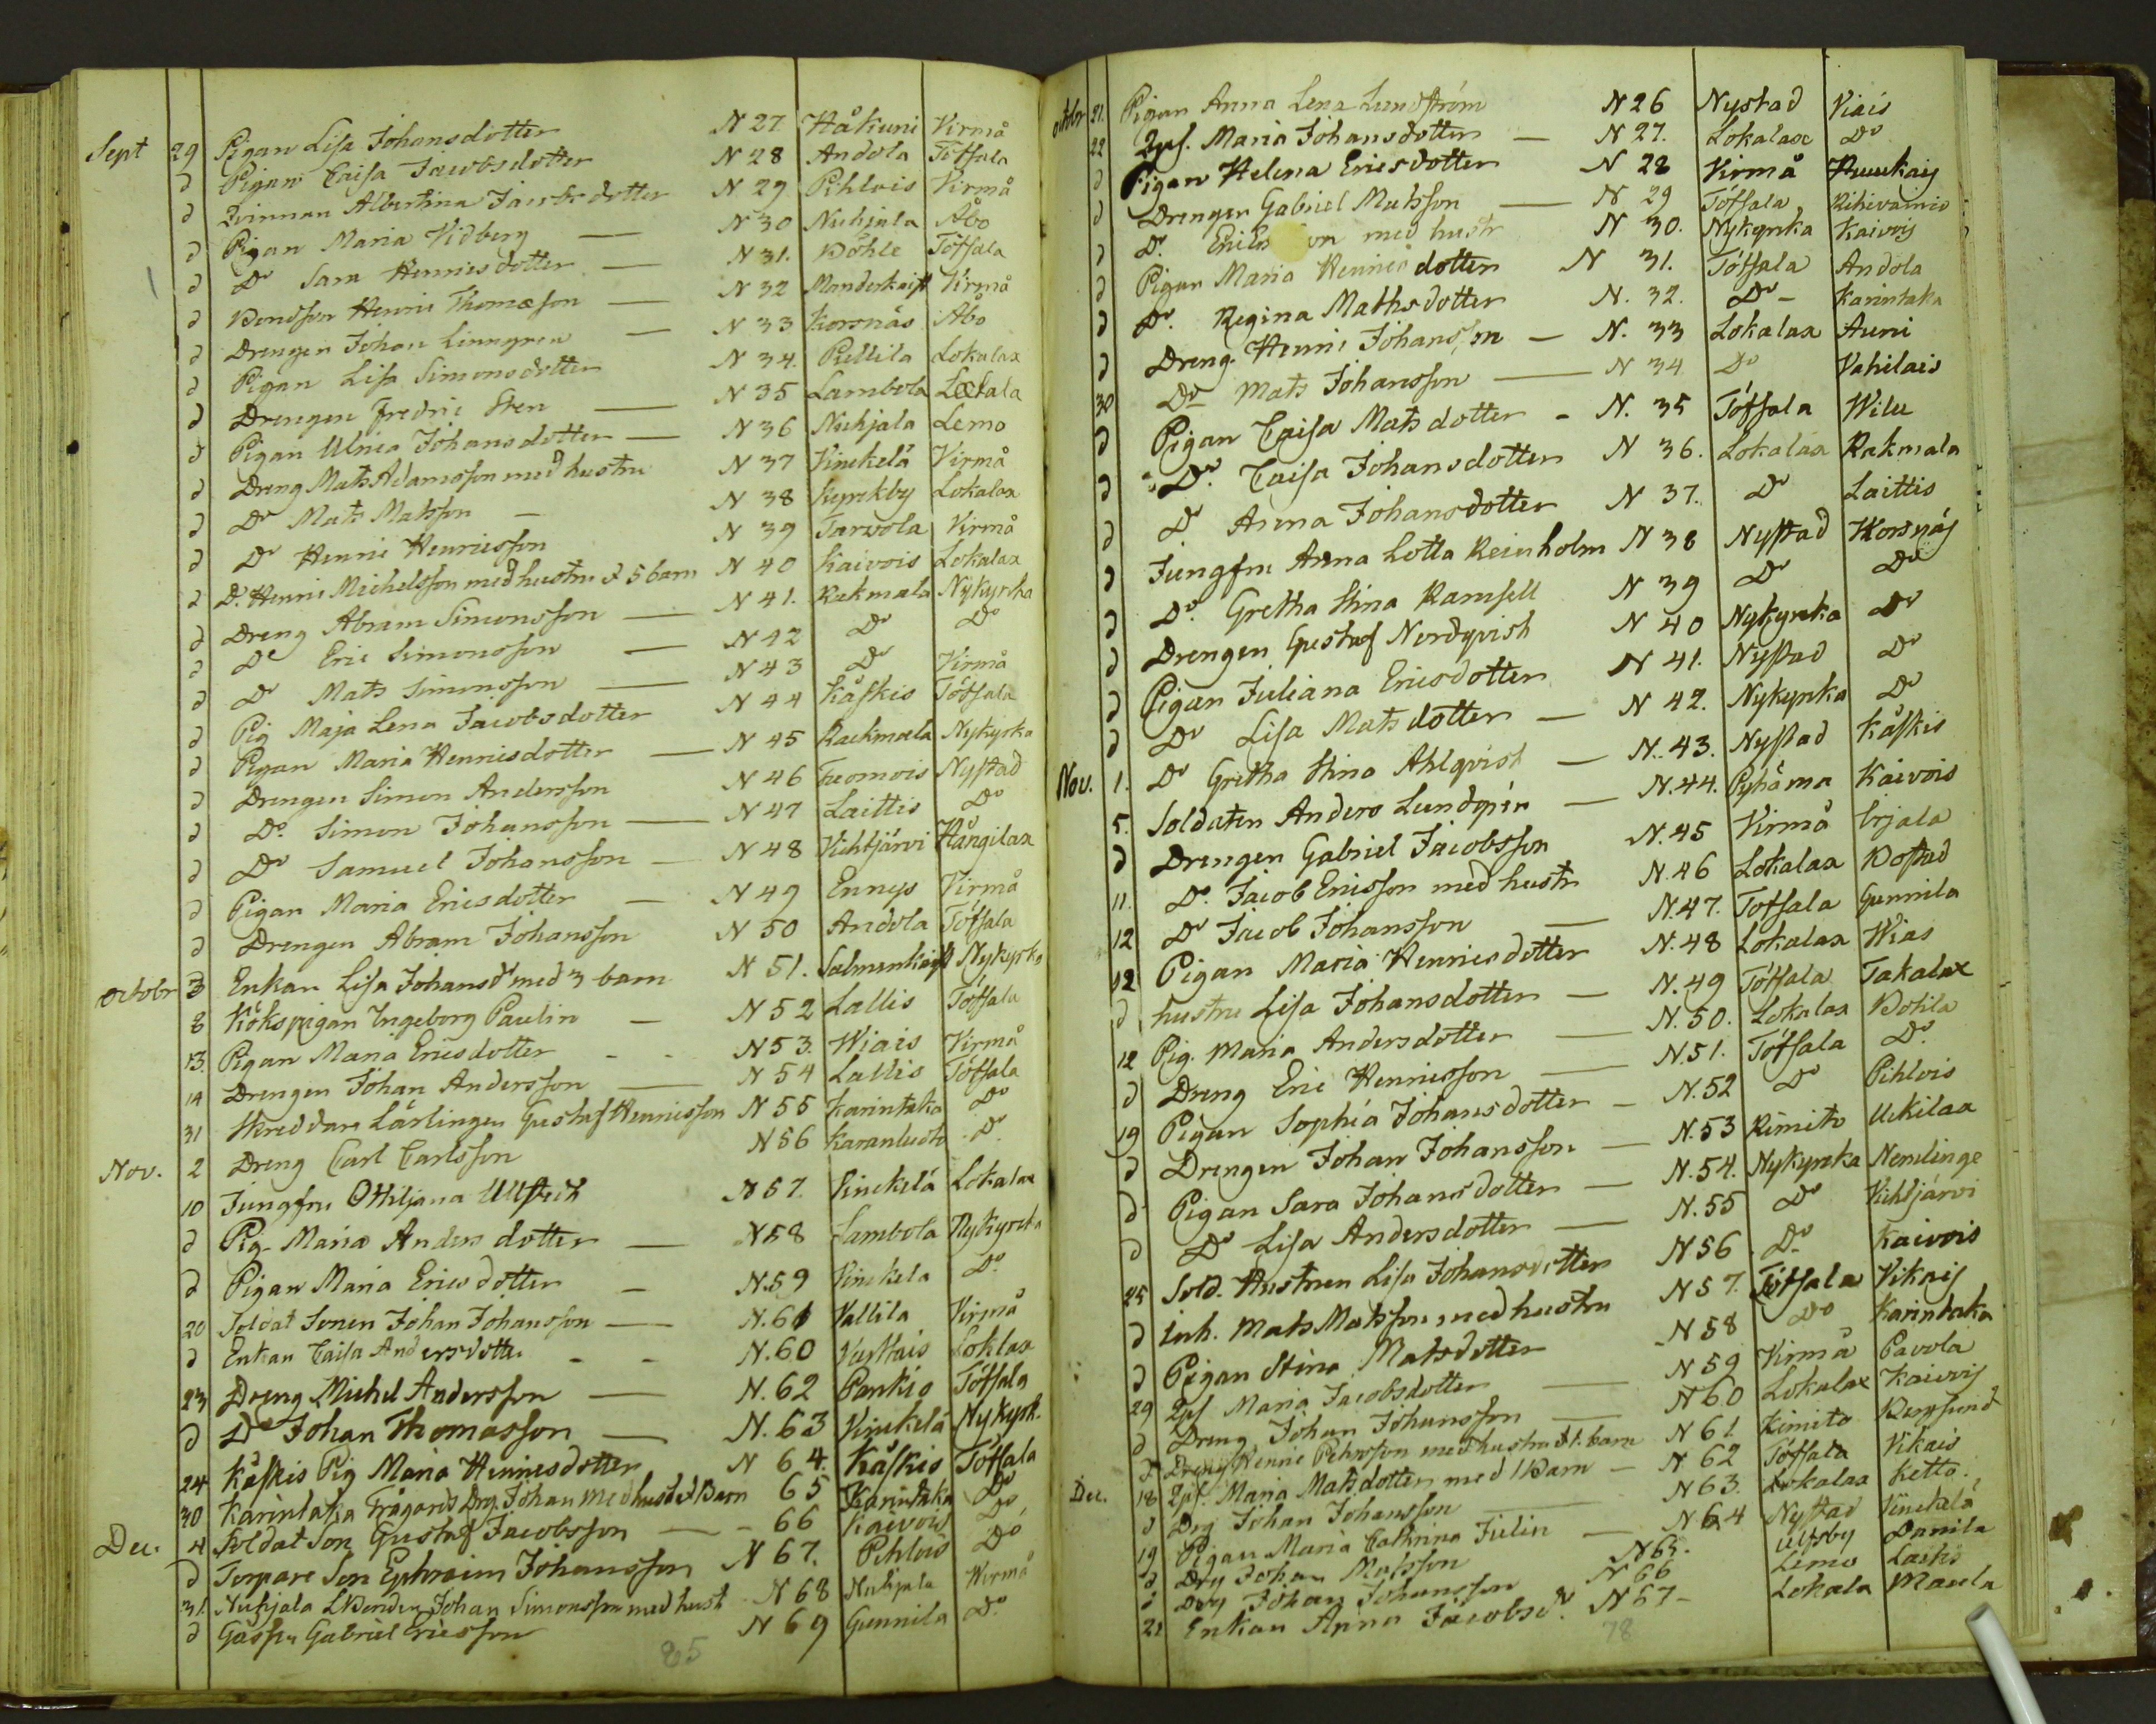 Sept 29 Pigan Lisa Johansdotter N 27 Håkuni Virmå
d Pigan Caisa Jacobsdotter N 28 Andola Töfsala
d Qvinnan Albertina Jacobsdotter N 29 Pihlois Virmå
d Pigan Maria Vidberg — N 30 Nuhjala Åbo
d Do Sara Henricsdotter — N 31. Döhle Töfsala
d Bondson Henric Thomæson — N 32 Manderkaist Virmå
d Drengen Johan Linngren — N 33 Korsnäs Åbo
d Pigan Lisa Simonsdotter N 34. Puttila Lokalax
d Drengen Fredric Sten — N 35 Lambola Lockala
d Pigan Ulrica Johansdotter — N 36 Nuhjala Lemo
d Dreng Mats Adamsson med hustru N 37 Vinckelä Virmå
d Do Mats Matsson — N 38 Kyrckby Lokalax
d Do Henric Henricsson N 39 Tarvola Virmå
d D. Henric Michelsson med hustru & 5 barn N 40 Kaivois Lokalax
d Dreng Abram Simonsson — N 41. Rakmala Nykyrka
d Do Eric Simonsson — N 42 Do Do
d Do Mats Simonsson — N 43 Do Virmå
d Pig Maja Lena Jacobsdotter N 44 Kåskis Töfsala
d Pigan Maria Henricsdotter — N 45 Rackmala Nykyrka
d Drengen Simon Andersson N 46 Nystad
d Do. Simon Johansson — N 47 Laittis Do
d Do Samuel Johansson — N 48 Vihtjärvi Hängilax
d Pigan Maria Ericsdotter — N 49 Ennys Virmå
d Drengen Abram Johansson N 50 Andola Töfsala
Octobr 3 Enkan Lisa Johansdr med 3 barn N 51. Salmenkaist Nykyrko
8 Kökspigan Ingeborg Paulin — N 52 Lallis Töfsala
13. Pigan Maria Ericsdotter - - N 53. Wiais Virmå
14 Drengen Johan Andersson — N 54 Lallis Töfsala
31 Skreddare Lärlingen Gustaf Henricsson N 55 Karintaka Do
Nov. 2 Dreng Carl Carlsson N 56 Karanludo Do
10 Jungfru Ottiljana Ullstedt N 57. Vinckelä Lokalax
d Pig. Maria Andersdotter — N 58 Lambola Nykyrcka
d Pigan Maria Ericsdotter — N. 59 Vinckela Do.
20 Soldat Sonen Johan Johansson — N. 61 Vallila Virmå
d Enkan Caisa Andersdotter - - N. 60 Varttais Loklax
23 Dreng Michel Andersson — N. 62 Pankio Töfsala
d Do Johan Thomasson — N. 63 Vinckelä Nykyrk.
24 Kåskis Pig Maria Henricsdotter N 64. Kåskis Töfsala
30 Karintaka Trägards Drg. Johan med hus & Barn 65 Karintaka Do
Dec. 4 Soldat Son Gustaf Jacobsson — - 66 Kaivois Do
d Torpare Son Ephraim Johansson N 67. Pihlois Do
31. Nuhjala LBonden Johan Simonsson med hust N 68 Nuhjala Wirmå
d Gäss Gabriel Ericsson N 69 Gunnila Do.
85
Octobr 21. Pigan Anna Lena Lundström N 26 Nystad Viais
22 Qps. Maria Johansdotter — N 27. Lokalax Do
d Pigan Helena Ericsdotter N 28 Virmå Huukais
d Drengen Gabriel Matsson — N 29 Töfsala Rihivainio
d D. med hustr N 30. Nykyrka Kaivois
d Pigan Maria Henricsdotter N 31. Töfsala Andola
d Do. Regina Mathsdotter N. 32. Do - Karintaka
d Dreng. Henric Johansson — N. 33 Lokalax Auni
30 Do Mats Johansson — N 34. Do Vahilais
d Pigan Caisa Matsdotter - N. 35 Töfsala Wilu
d Do. Caisa Johansdotter N 36. Lokalax Rakmala
d Do Anna Johansdotter N 37. Do Laittis
d Jungfru Anna Lotta Reinholm N 38 Nystad Korsnäs
d Do. Gretha Stina Ramsell N 39 Do Do
d Drengen Gustaf Nordqvist N 40 Nykyrka Do
d Pigan Juliana Ericsdotter N 41. Nystad Do
d Do Lisa Matsdotter — N 42. Nykyrka Do
Nov. 1. Do Gretha Stina Ahlqvist — N. 43. Nystad Kåskis
5. Soldaten Anders Lundgren — N. 44. Pyhäma Kaivois
d Drengen Gabriel Jacobsson N. 45 Virmå Erjala
11. Do. Jacob Ericsson med hustr N. 46 Lokalax Bostad
12 Do Jacob Johansson — N. 47. Tofsala Gunnila
12 Pigan Maria Henricsdotter N. 48 Lokalax Wias
d hustru Lisa Johansdotter — N. 49 Töfsala Takalax
12 Pig. Maria Andersdotter — N. 50. Lokalax Botila
d Dreng Eric Henricsson — N. 51. Töfsala Do.
19 Pigan Sophia Johansdotter — N. 52 Do Pihlois
d Drengen Johan Johansson — N. 53 Kimito Uckilax
d Pigan Sara Johansdotter — N. 54. Nykyrka Nemlinge
d Do Lisa Andersdotter — N. 55 Do Vihtjärvi
25 Sold. Hustrun Lisa Johansdotter N 56 Do Kaivois
d Inh. Mats Matsson med hustru N 57. Töfsala Vikais
d Pigan Stina Matsdotter N 58 Do Karintaka
29 Qps Maria Jacobsdotter — N 59 Virmå Pavola
d Dreng Johan Johansson — N 60 Lokalax Kaivois
d Dreng Henric Pehrsson med hustru & 1. barn N 61. Kimito Bergsund
Dec. 18 Qps. Maria Matsdotter med 1 Barn — N 62 Töfsala Vikais
d Drg Johan Johansson — N 63. Lokalax Ketto.
19 Pigan Maria Cathrina Julin — N 64 Nystad Vinckelä
d Drg Johan Matsson N 65. Ulfsby Danila
d Drg Johan Johansson N 66 Lemo Lachis
21 Enkan Anna Jacobsdr N 67 - Lokala Maula
78